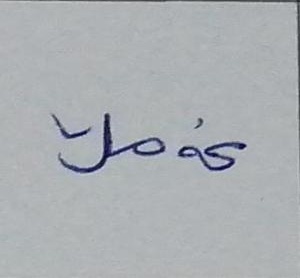 Yoás